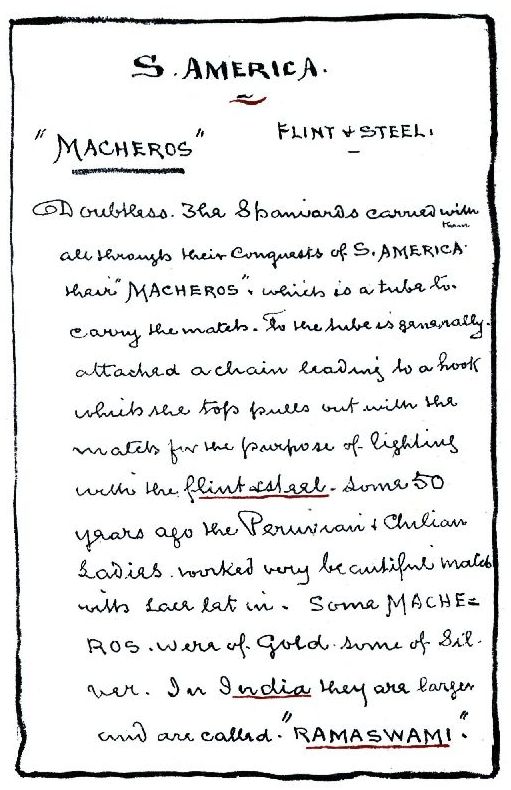 S. AMERICA.
"MACHEROS" FLINT & STEEL.
Doubtless. The Spaniards carried with them
all through their Conquests of S. AMERICA
their "MACHEROS". which is a tube to.
carry the match. To the tube is generally.
attached a chain leading to a hook
which the top pulls out with the
match for the purpose of lighting
with the flint & steel. Some 50
years ago the Peruvian & Chilian
Ladies. worked very beautiful match
with lace let in. Some MACHE=
ROS. were of Gold some of Sil-
ver. In India they are larger
and are called. "RAMASWAMI".